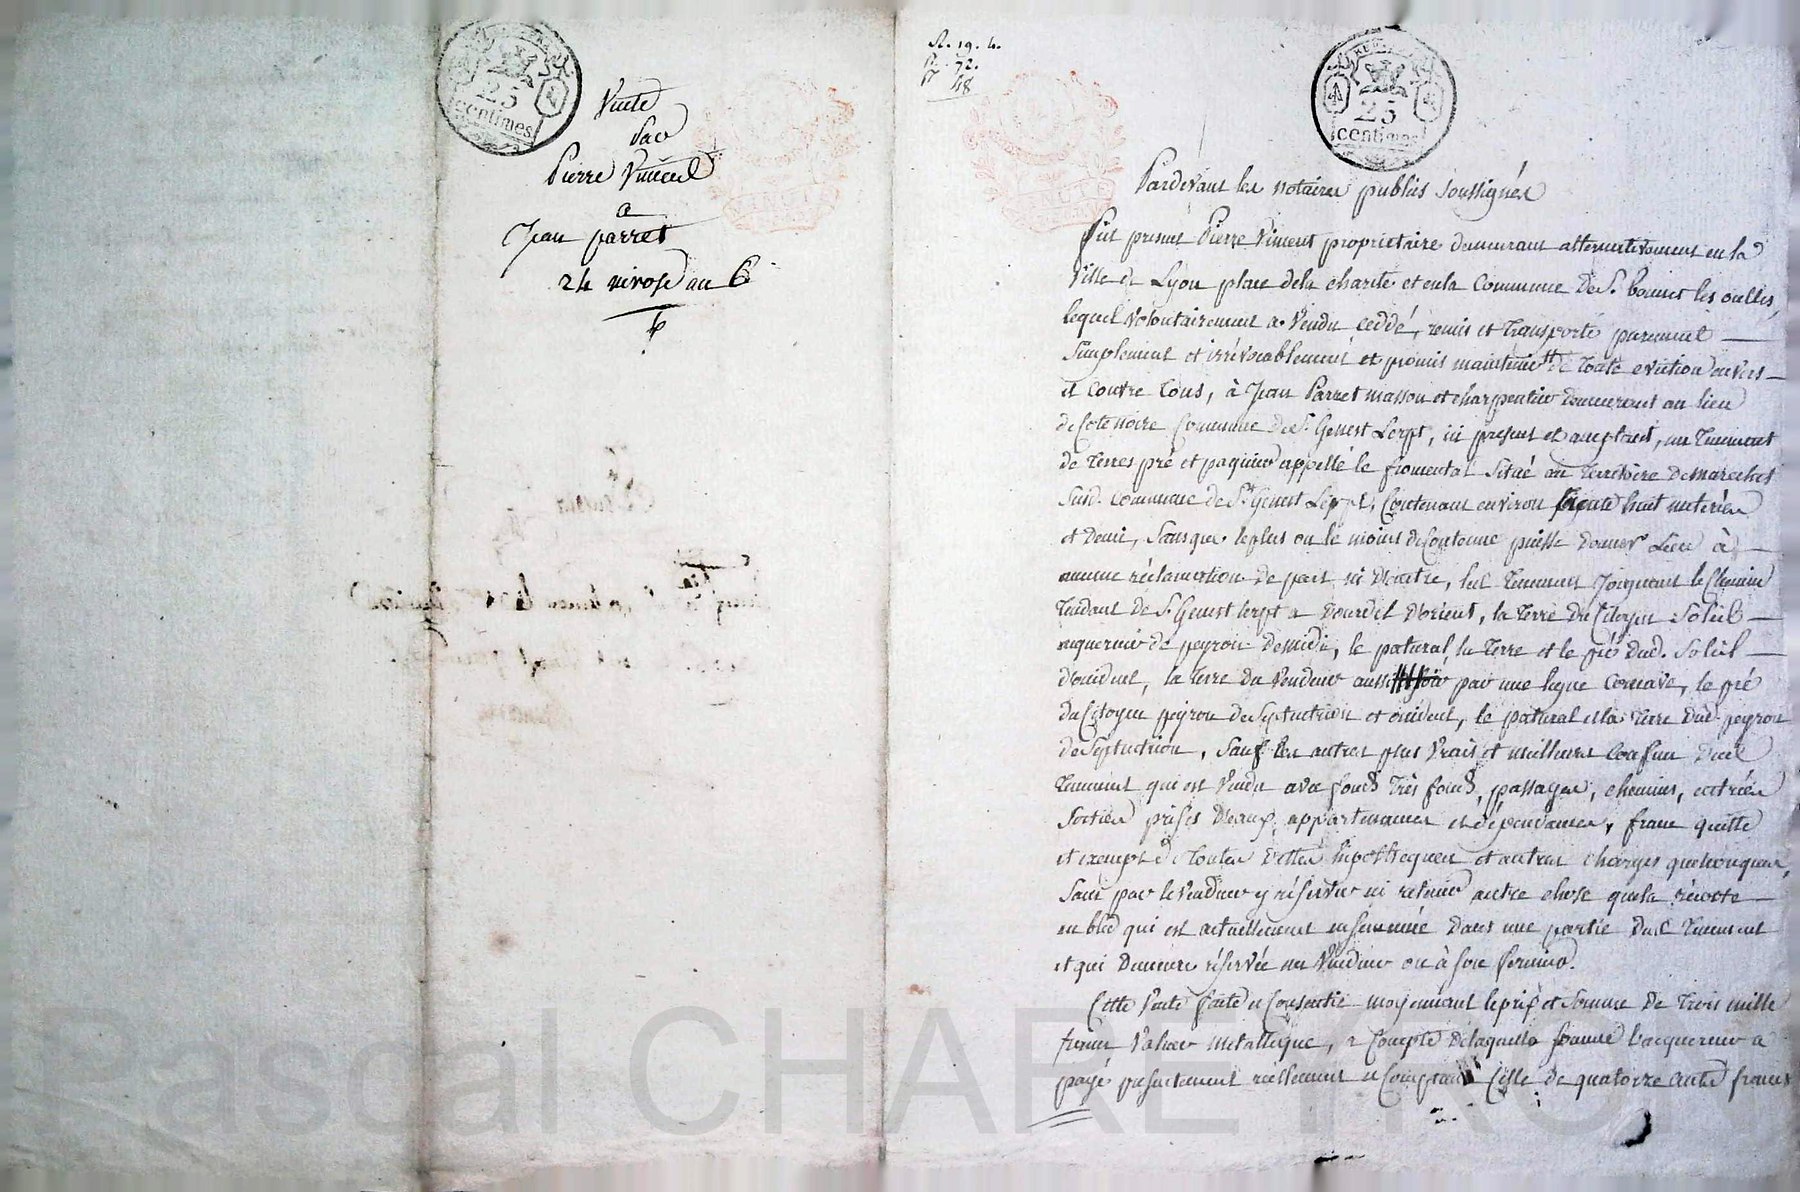 25
centimes
Vente
Par
Pierre Vincent
a
Jean parret
24 nivose an 6
R. 19. 4.
72.
48
25
centimes
Pardevant les notaires publics soussignés
fut présent Pierre Viment proprietaire demeurant alternativement en la
Ville de Lyon place dela charité et enla Commune de St. bonnet les oulles,
lequel volontairement a vendu ceddé, remis et transporté purement
Simplement et irrévocablement et promis maintenir de toute eviction envers
et contre tous, à Jean Parret masson et charpentier demeurant au lieu
de Cote noire Commune de St. Genest Lerpt, ici present et acceptant, un tenement
de terres pré et paquier appellé le fromental situé au territoire de marechet
susd. commune de St. Genest Lerpt, Contenant environ huit meterées
et demie, sans que le plus ou le moins de Contenue puisse donner Lieu à
aucune réclamation de part ni d'autre, led. tenement Joignant le Chemin
tendant de St. Genest lerpt a d'orient, la terre du Citoyen Soleil
acquereur de peyron de midi, le patural, la terre et le pré dud. Soleil
d'occident, la terre du vendeur aussi par une ligne Concave, le pré
du Citoyen peyron de Septentrion et occident, le patural et la terre dud. peyron
de Septentrion, Sauf les autres plus vrais et meilleurs Confins dud.
tenement qui est vendu avec fonds très fonds, passages, chemins, entrées
Sorties prises d'eaux, appartenances et dépendances, franc quitte
et exempt de toutes dettes hipothèques et autres charges quelconques,
Sans par le vendeur y réserver ni retenir autre chose quela récolte
en bled qui est actuellement ensemencée dans une partie dud. tenement
et qui demeure réservée au Vendeur ou à son fermier.
Cette Vente faite et Consentie moyennant le prix et Somme de trois mille
francs valeur métallique, a Compte de laquelle Somme l'acquereur a
payé présentement réellement et Comptant Celle de quatorze cents francs
Pascal CHAREYRON